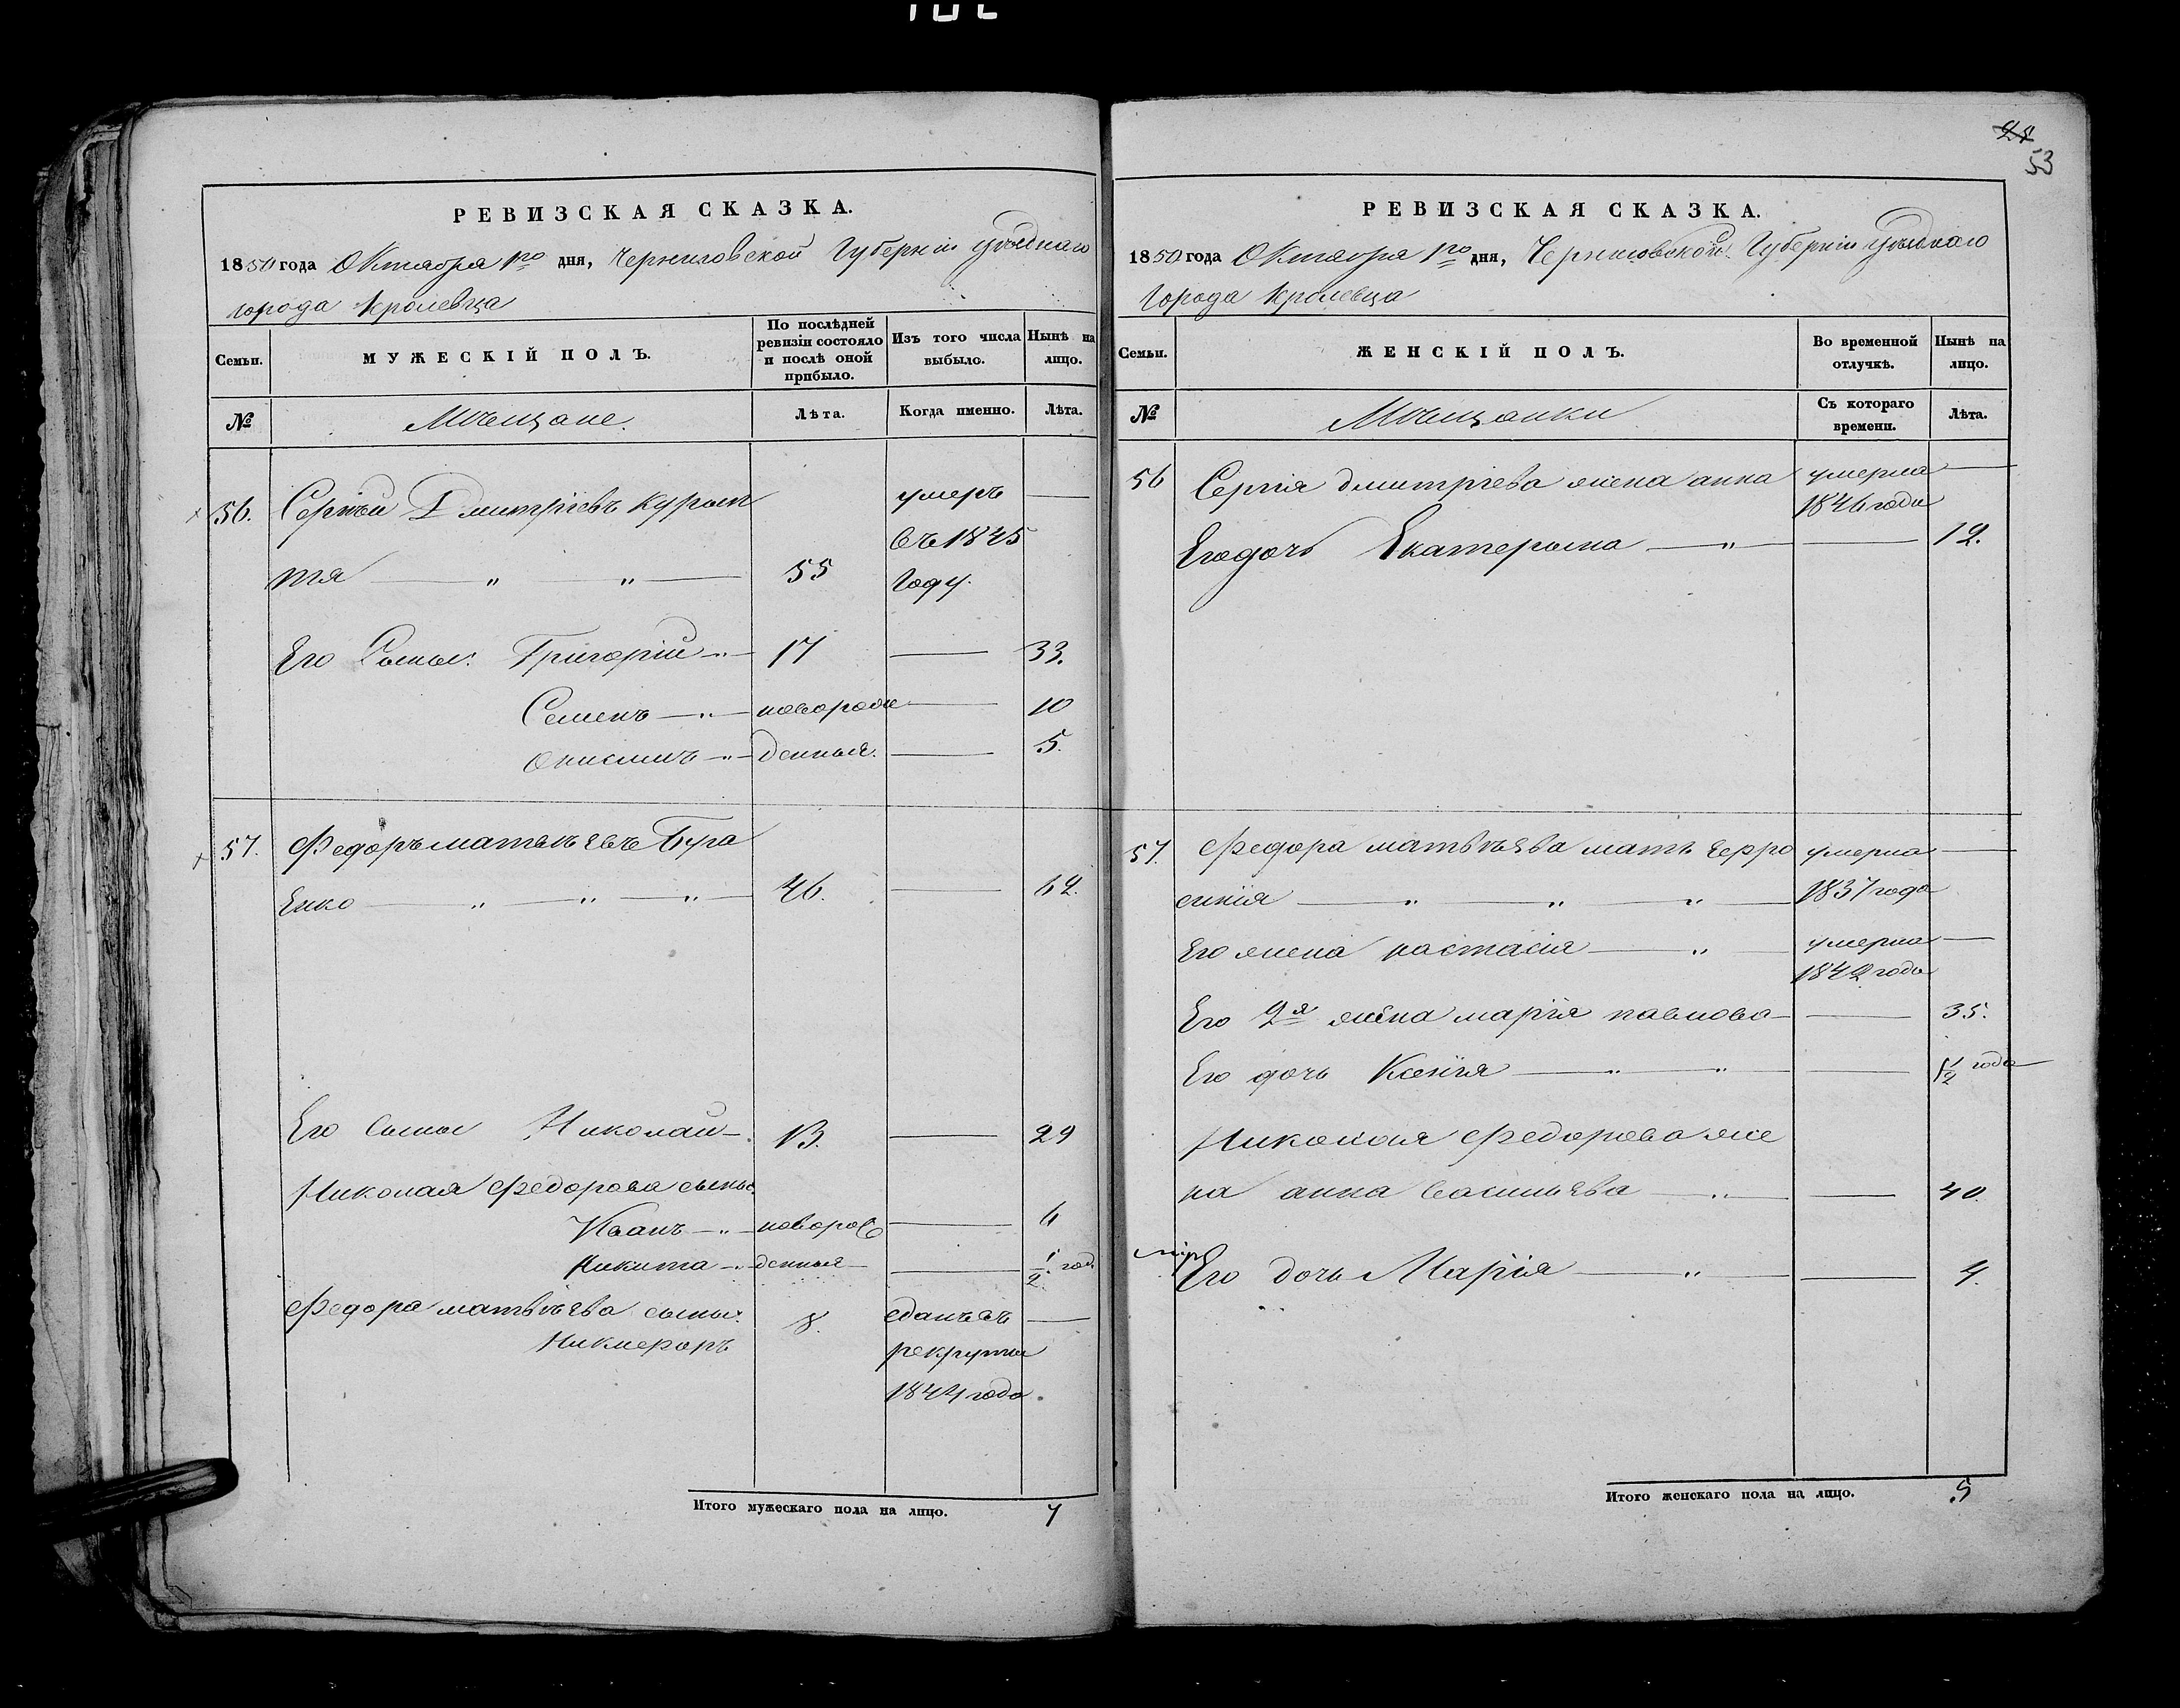 РЕВИЗСКАЯ СКАЗКА.
1850 года Октября 1го дня, Черниговской Губерніи уѣзднаго
города Кролевца
Семьи. МУЖЕСКІЙ ПОЛЪ. По послѣдней ревизіи состояло и послѣ оной прибыло. Изъ того числа выбыло. Нынѣ на лицо.
№ Мѣщане. Лѣта. Когда именно. Лѣта.
56. Сергѣй Дмитріевъ умеръ —
въ 1845
тя — " " — 55 году.
Его Сыны: Григорій — 17 — 33.
Семенъ — " — новорож — 10
Онисимъ — " — денныя. — 5.
57. Федоръ матвѣевъ Буга
енко — " — " — " — 46. — 62.
Его сыны Николай — 13. — 29
Николая Федорова сыны
Иванъ — " — новорож — 6
Никита — " — денныя — 1/2 год
Федора матвѣева сыны: 8. сданъ въ —
Никифоръ рекруты
1844 года.
Итого мужескаго пола на лицо. 7
24
53
РЕВИЗСКАЯ СКАЗКА.
1850 года Октября 1го дня, Черниговской Губерніи уѣзднаго
города Кролевца
Семьи. ЖЕНСКІЙ ПОЛЪ. Во временной отлучкѣ. Нынѣ на лицо.
№ Мѣщанки Съ котораго времени. Лѣта.
56 Сергія дмитріева жена анна умерла —
1846 года
Его дочь Екатерына — " — — 12.
57. Федора матвѣева мать Ефро умерла —
синія — " — " — " — 1837 года
Его жена настасія — " — умерла —
1842 года
Его 2я жена марія павлова — — 35.
Его дочь Ксенія — " " — — 1/2 года
Николая Федорова же
на анна васильева — " — — 40.
Его дочь Марія — " — — 4.
Итого женскаго пола на лицо. 5